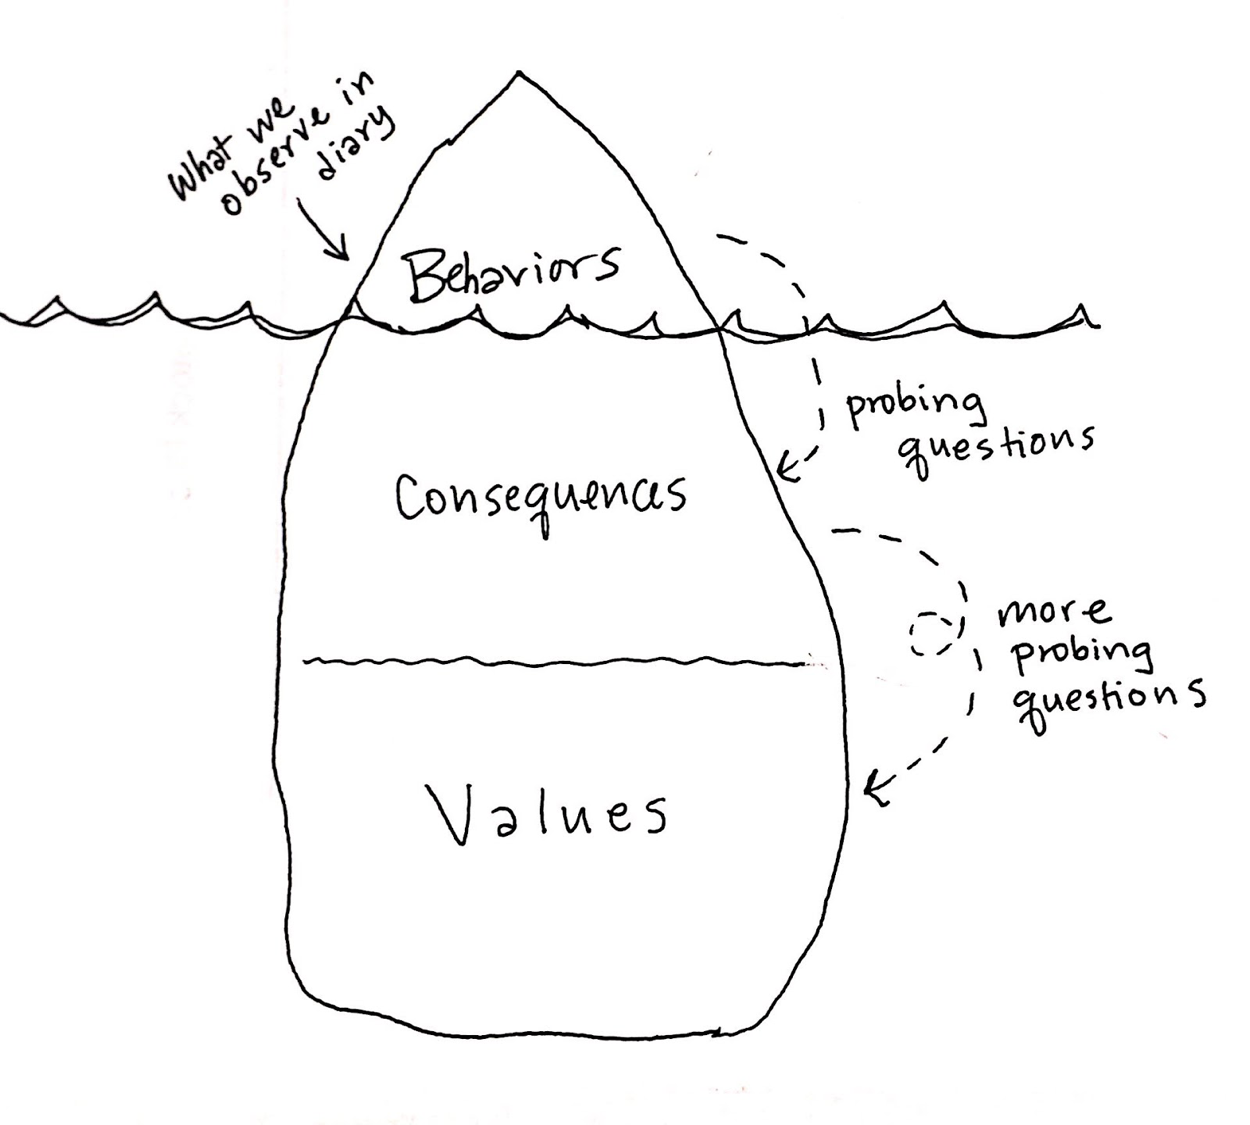 What we
observe in
diary
Behaviors
probing
questions
Consequences
more
probing
questions
Values